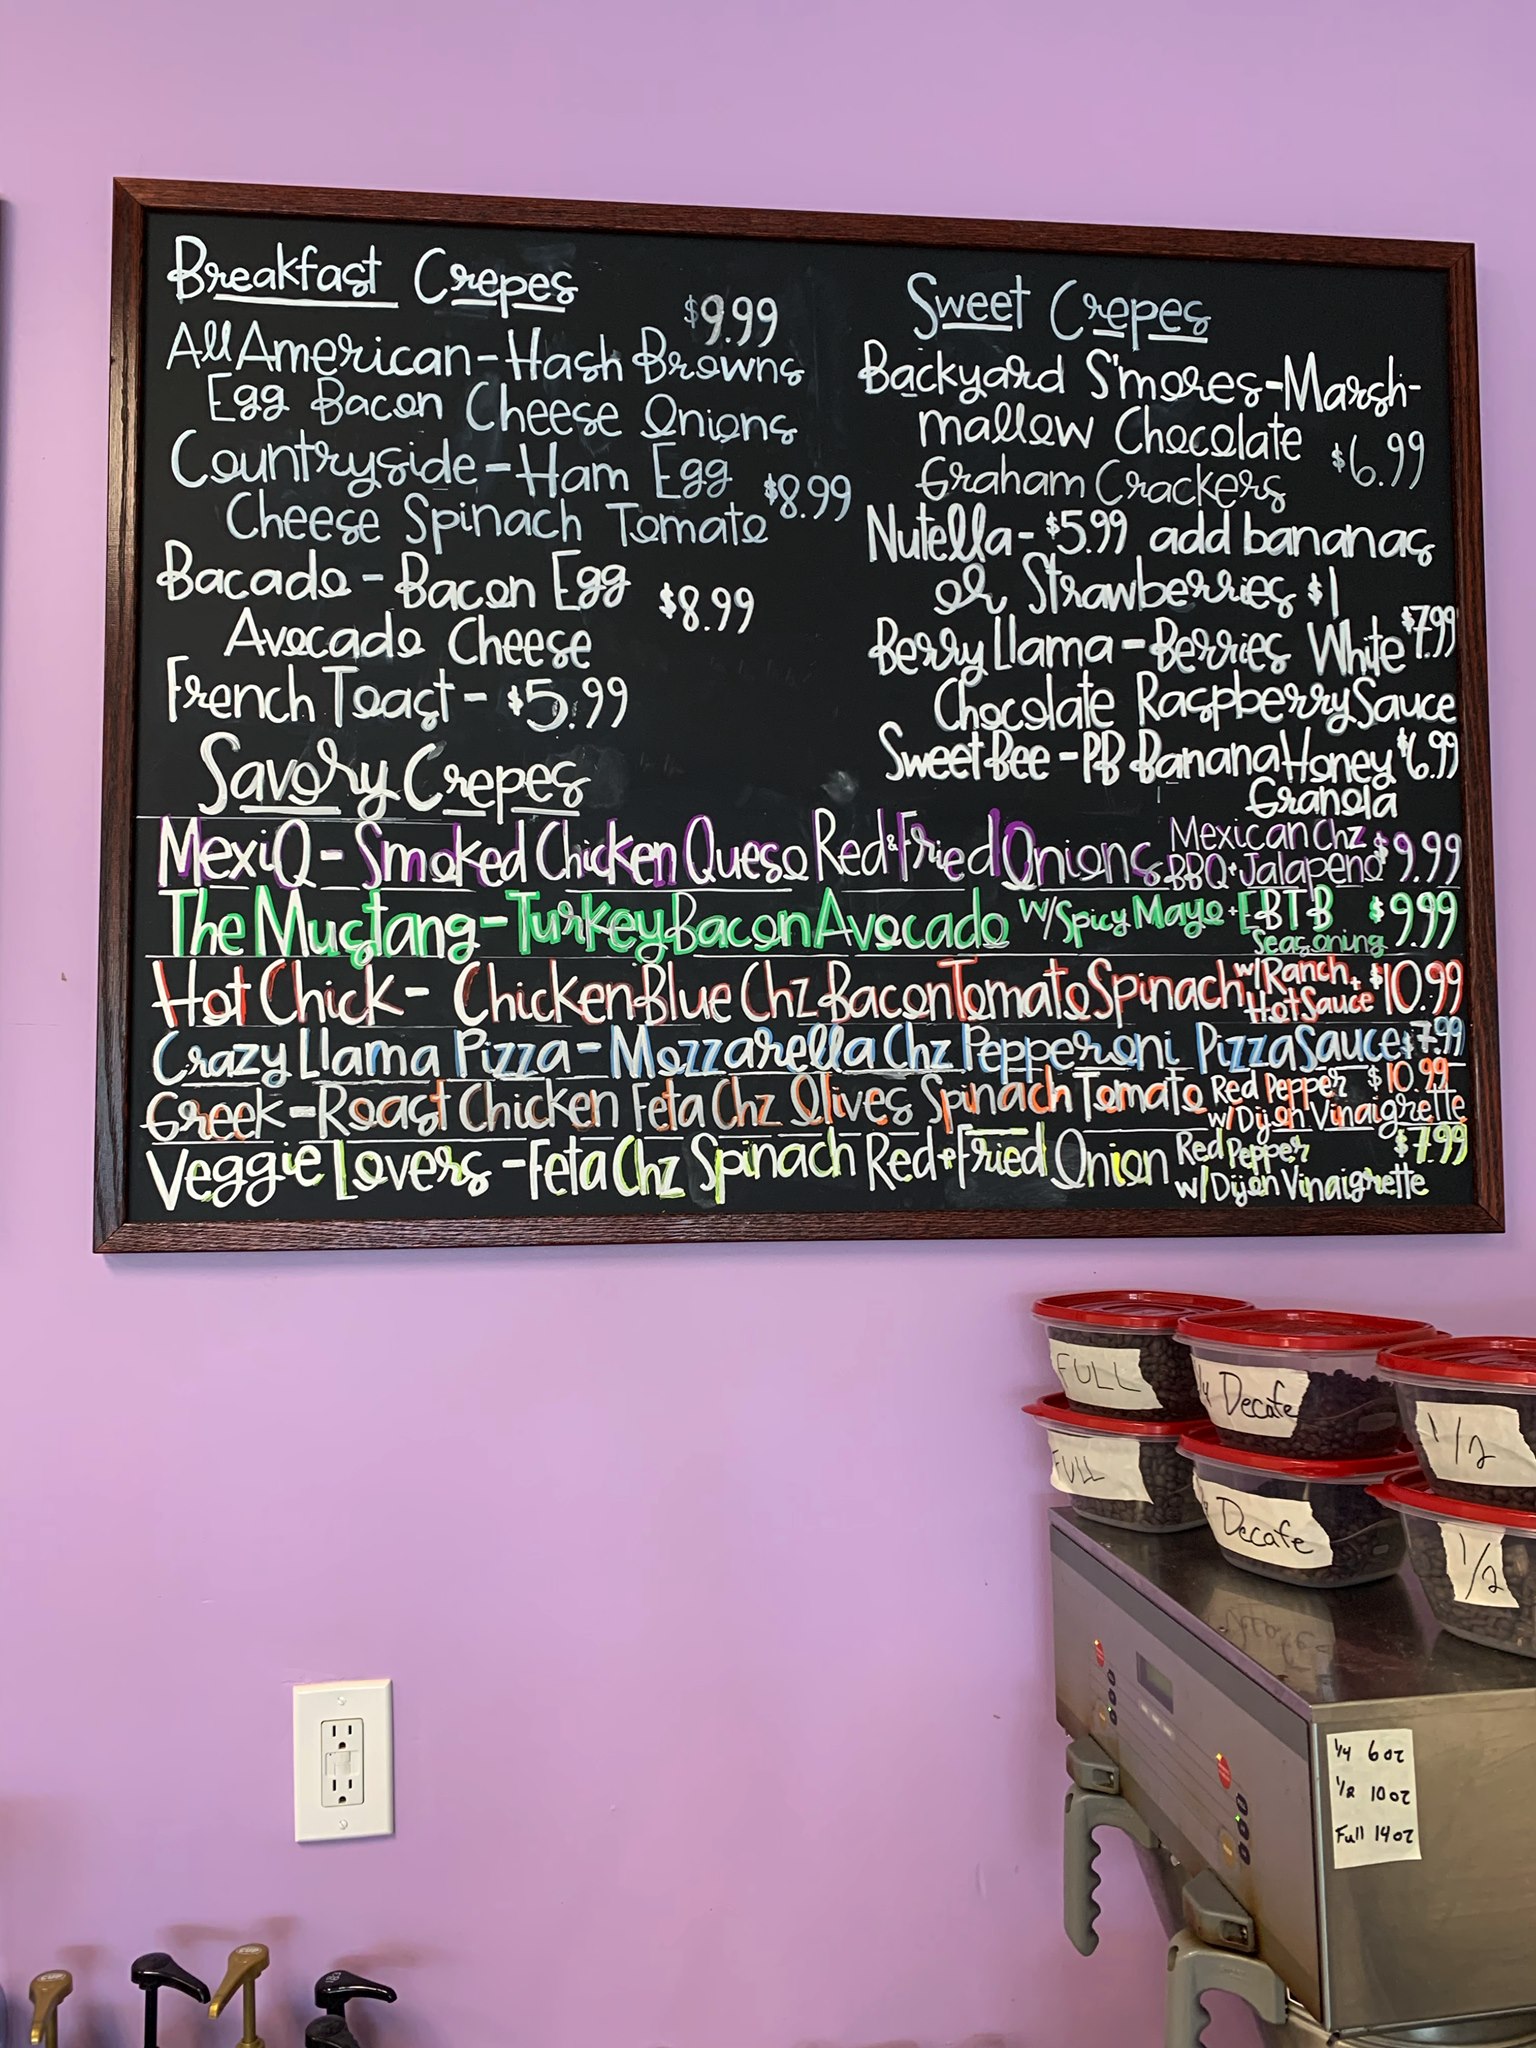 Breakfast Crepes
$9.99
All American - Hash Browns
Egg Bacon Cheese Onions
Countryside - Ham Egg
$8.99
Cheese Spinach Tomato
Bacado - Bacon Egg
$8.99
Avocado Cheese
French Toast - $5.99
Sweet Crepes
Backyard S'mores - Marsh-
mallow Chocolate
$6.99
Graham Crackers
Nutella - $5.99 add bananas
or Strawberries $1
Berry Llama - Berries White $7.99
Chocolate Raspberry Sauce
Sweet Bee - PB Banana Honey $6.99
Granola
Savory Crepes
MexiQ - Smoked Chicken Queso Red & Fried Onions Mexican Chz
BBQ + Jalapeno $9.99
The Mustang - Turkey Bacon Avocado w/ Spicy Mayo + EBTB $9.99
Seasoning
Hot Chick - Chicken Blue Chz Bacon Tomato Spinach w/ Ranch +
Hot Sauce $10.99
Crazy Llama Pizza - Mozzarella Chz Pepperoni Pizza Sauce $7.99
Greek - Roast Chicken Feta Chz Olives Spinach Tomato Red Pepper $10.99
w/ Dijon Vinaigrette
Veggie Lovers - Feta Chz Spinach Red + Fried Onion Red Pepper $7.99
w/ Dijon Vinaigrette
FULL
Decafe
1/2
FULL
Decafe
1/2
1/4 6oz
1/2 10oz
Full 14oz